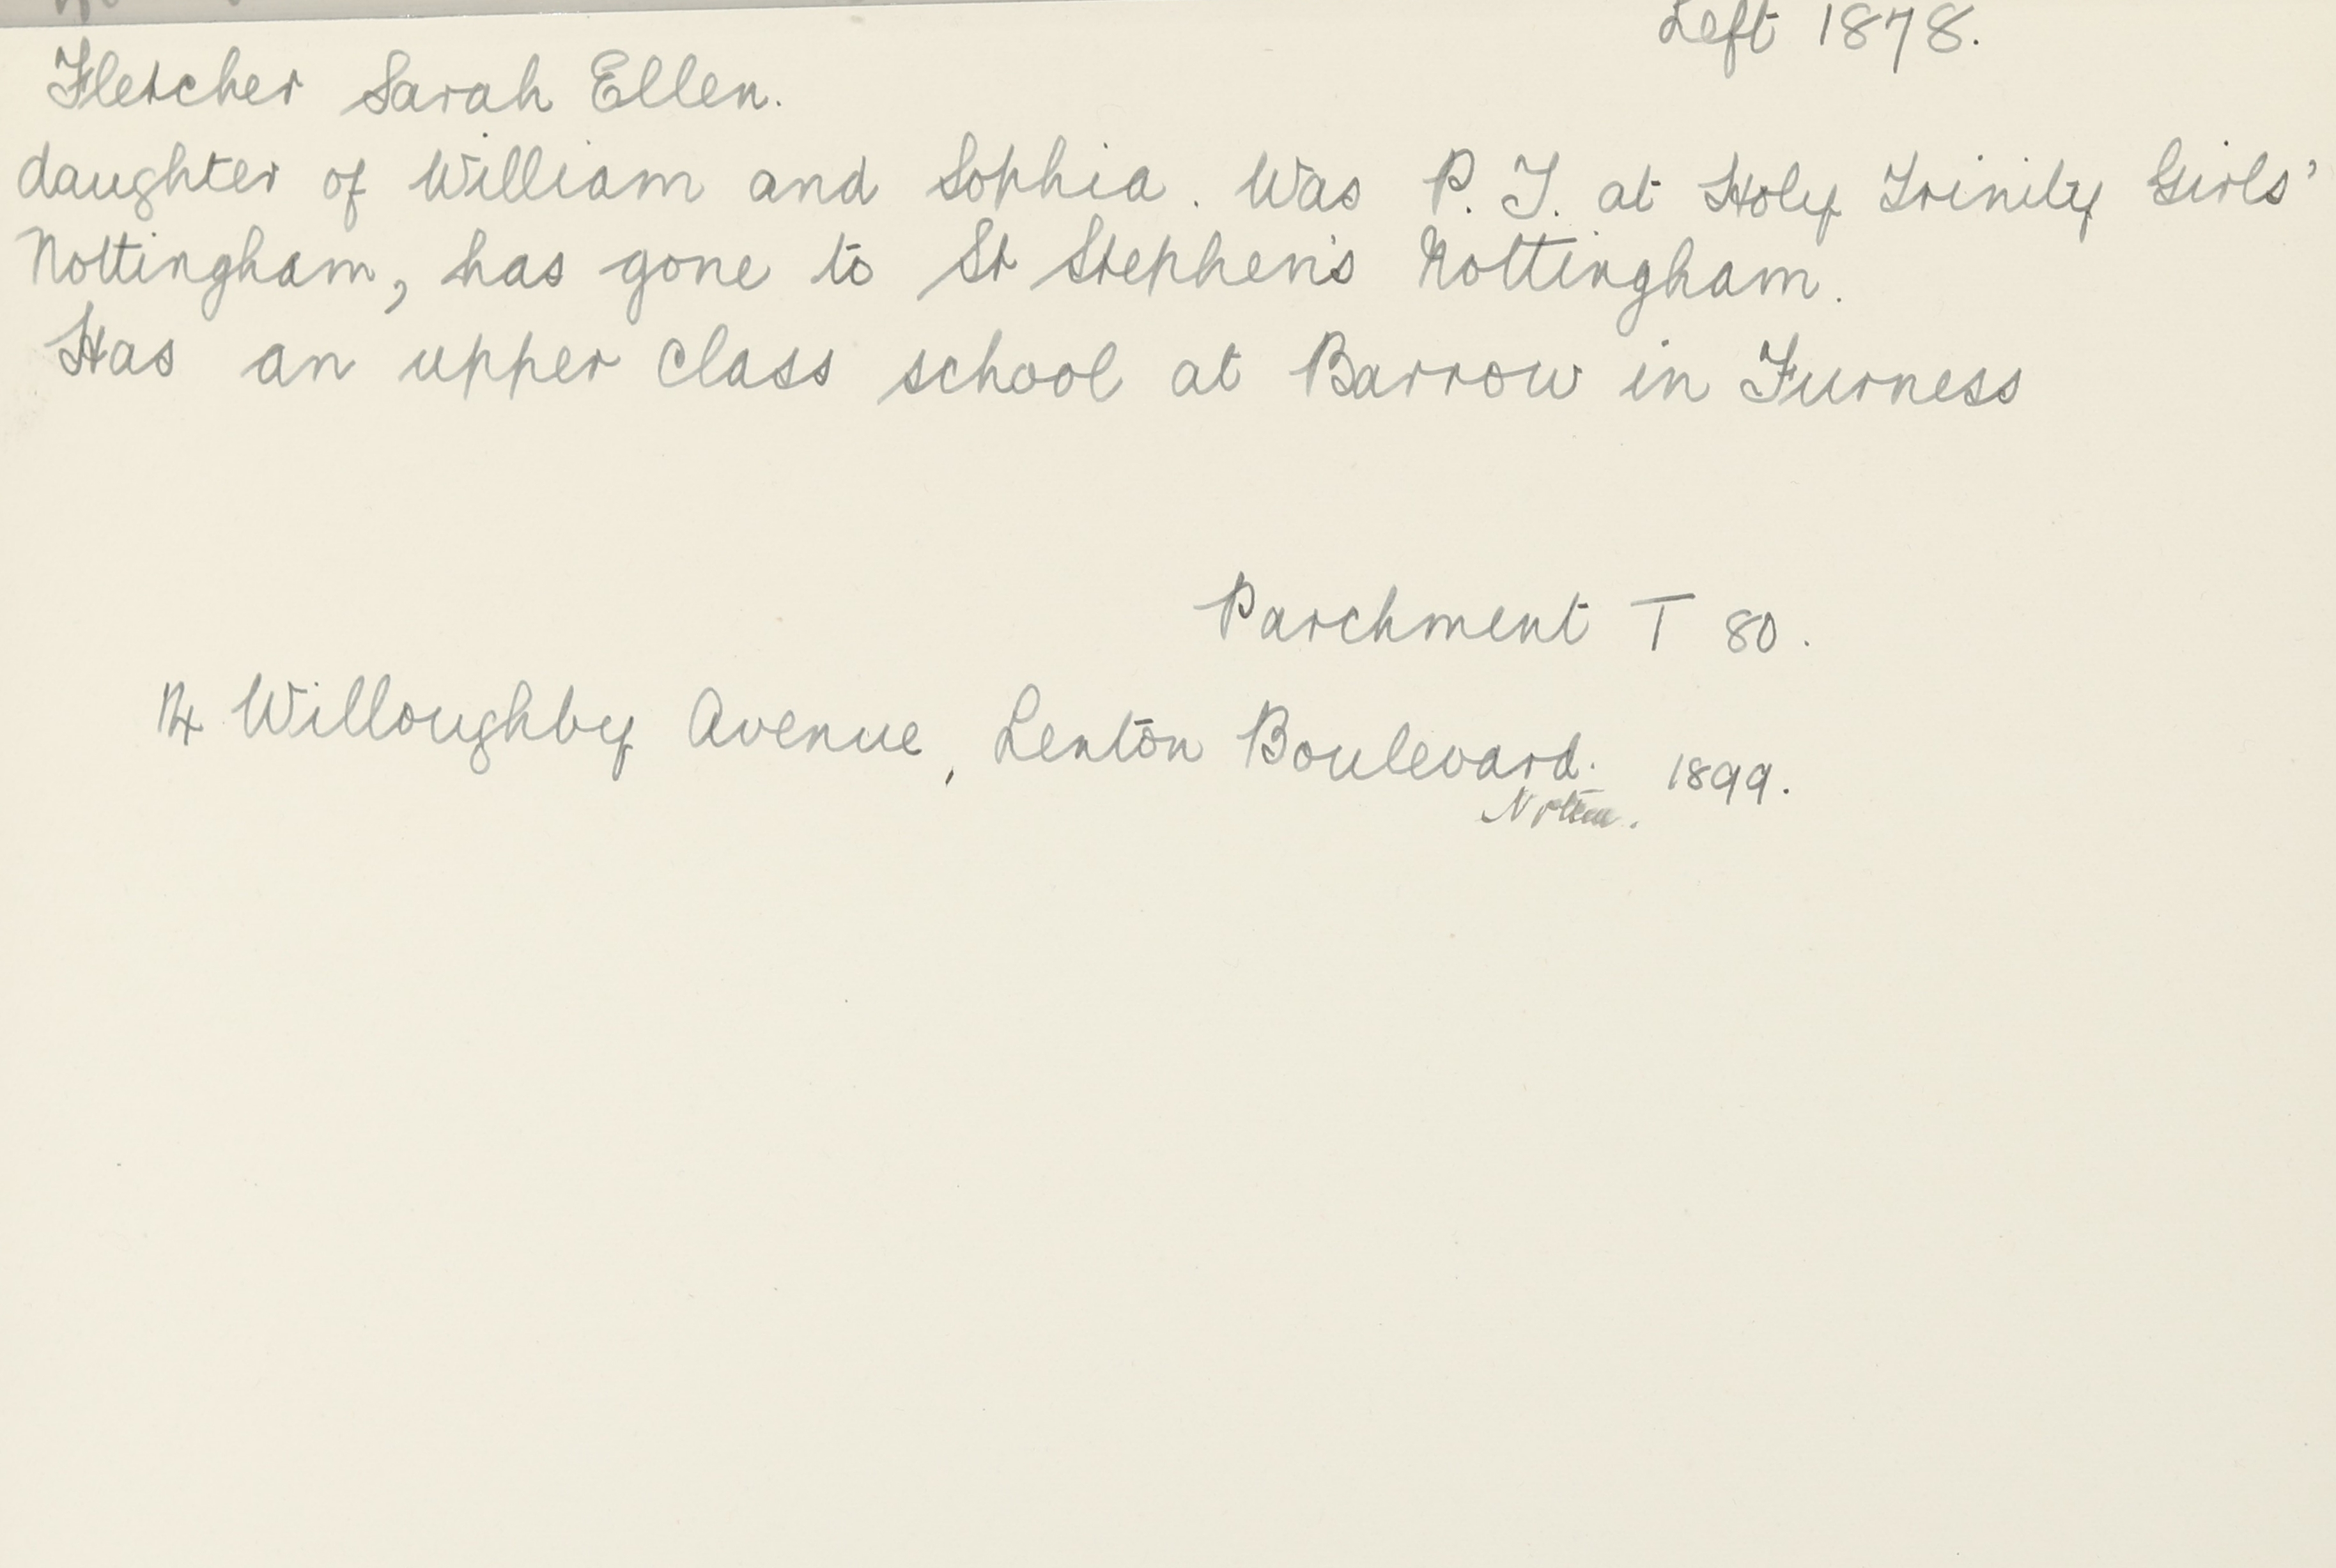 Left 1878.
Fletcher Sarah Ellen.
daughter of William and Sophia. Was P. T. at Holy Trinity Girls'
Nottingham, has gone to St Stephen's Nottingham.
Has an upper class school at Barrow in Furness
Parchment T 80.
Willoughby Avenue, Lenton Boulevard. 1899.